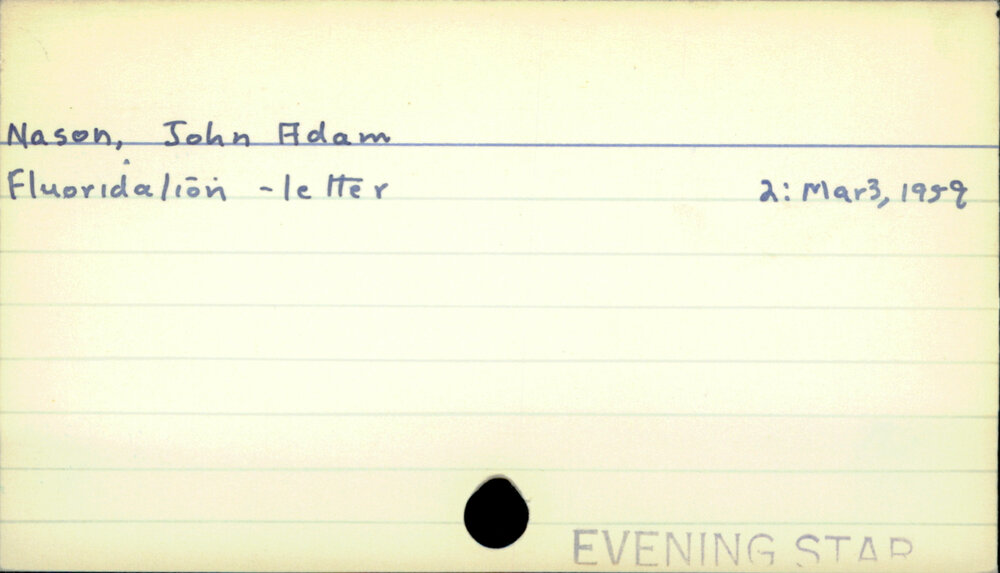 Nason, John Adam
Fluoridation - letter 2: Mar 3, 1959
EVENING STAR